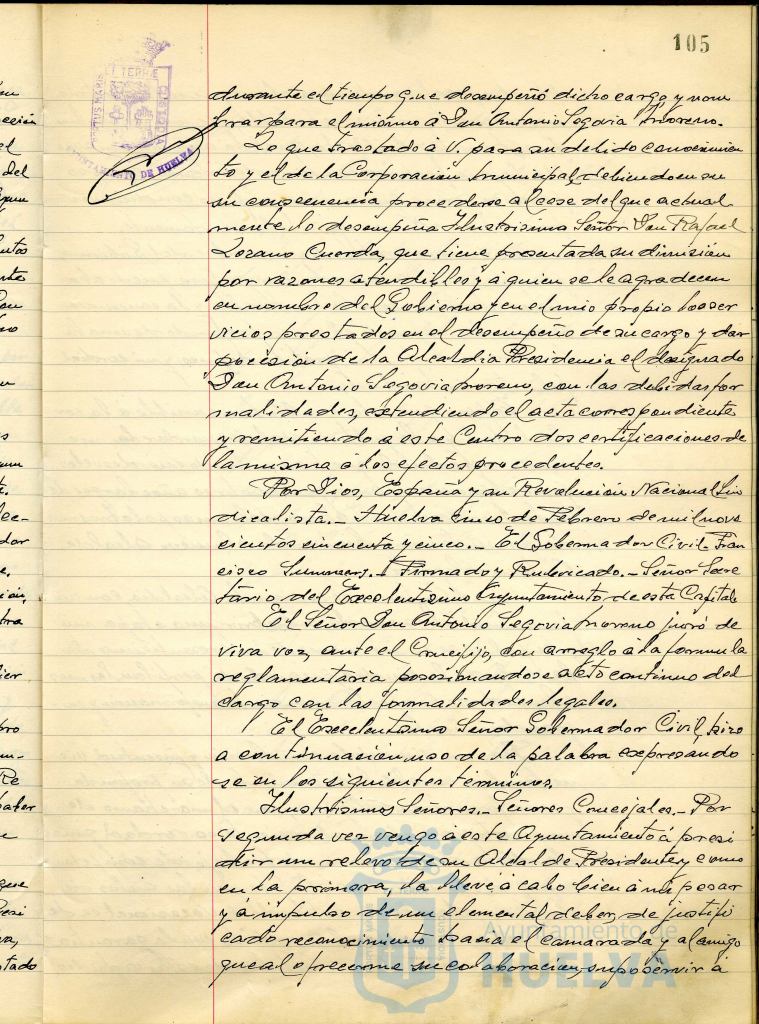 105
durante el tiempo que desempeñó dicho cargo y nom
brar para el mismo á Don Antonio Segovia Moreno.
Lo que traslado á V. para su debido conocimien
to y el de la Corporación Municipal, debiendo en su
su consecuencia procederse al cese del que actual
mente lo desempeña Ilustrisimo Señor Don Rafael
Lozano Cuerda, que tiene presentada su dimisión
por razones atendibles y á quien se le agradecen
en nombre del Gobierno y en el mio propio los ser
vicios prestados en el desempeño de su cargo y dar
pocesión de la Alcaldia Presidencia el designado
Don Antonio Segovia Moreno, con las debidas for
malidades, extendiendo el acta correspondiente
y remitiendo á este Centro dos certificaciones de
la misma á los efectos procedentes.
Por Dios, España y su Revolución Nacional Sin
dicalista.- Huelva cinco de Febrero de mil nove
cientos cincuenta y cinco.- El Gobernador Civil.- Fran
cisco Summers.- Firmado y Rubricado.- Señor Secre
tario del Excelentisimo Ayuntamiento de esta Capital.
El Señor Don Antonio Segovia Moreno juró de
viva voz, ante el Crucifijo, con arreglo á la formula
reglamentaria posesionandose acto continuo del
cargo con las formalidades legales.
El Excelentisimo Señor Gobernador Civil, hizo
a continuación uso de la palabra expresando
se en los siguientes términos.
Ilustrisimos Señores.- Señores Concejales.- Por
segunda vez vengo á este Ayuntamiento á presi
dir un relevo de su Alcalde Presidente y como
en la primera, la llevé á cabo bien á mi pesar
y á impulso de un elemental deber, de justifi
cado reconocimiento hacia el camarada y al amigo
que al ofrecerme su colaboración, supo servir á
AYUNTAMIENTO DE HUELVA
Ayuntamiento de
HUELVA